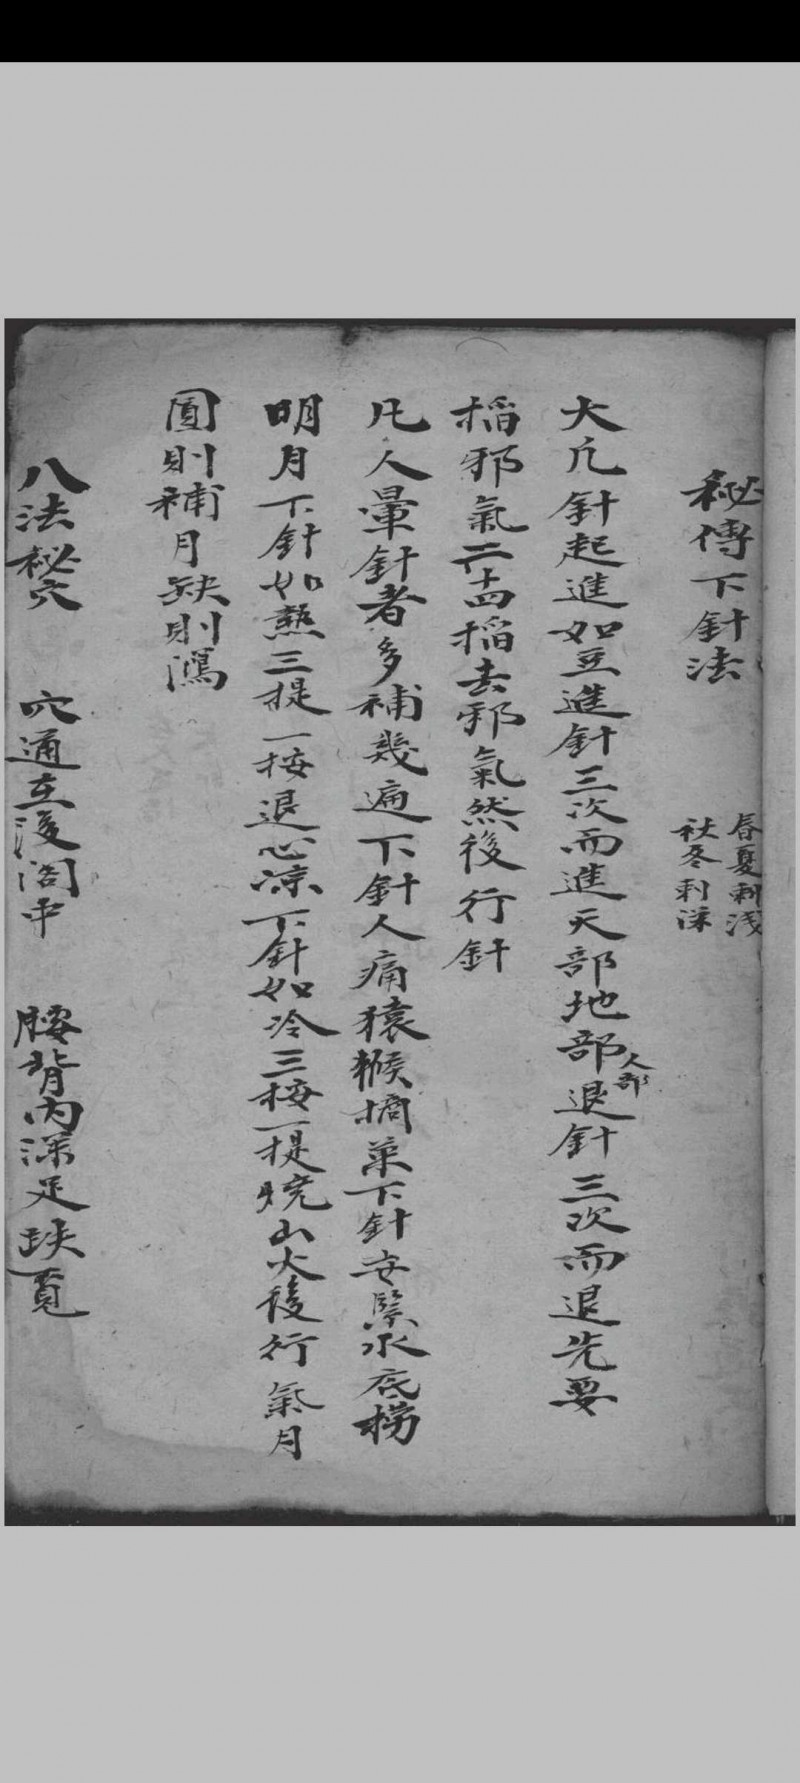 秘傳下針法
春夏刺浅
秋冬刺深
大凢針起進如豆進針三次而進天部地部人部退針三次而退先要
搯邪氣二十四搯去邪氣然後行針
凡人暈針者多補幾遍下針人痛猿猴摘菓下針安緊水底撈
明月下針如熱三提一按退心凉下針如冷三按一提燒山火後行氣月
圓則補月缺則瀉
八法秘穴 穴通在後阁中 腰背内深足